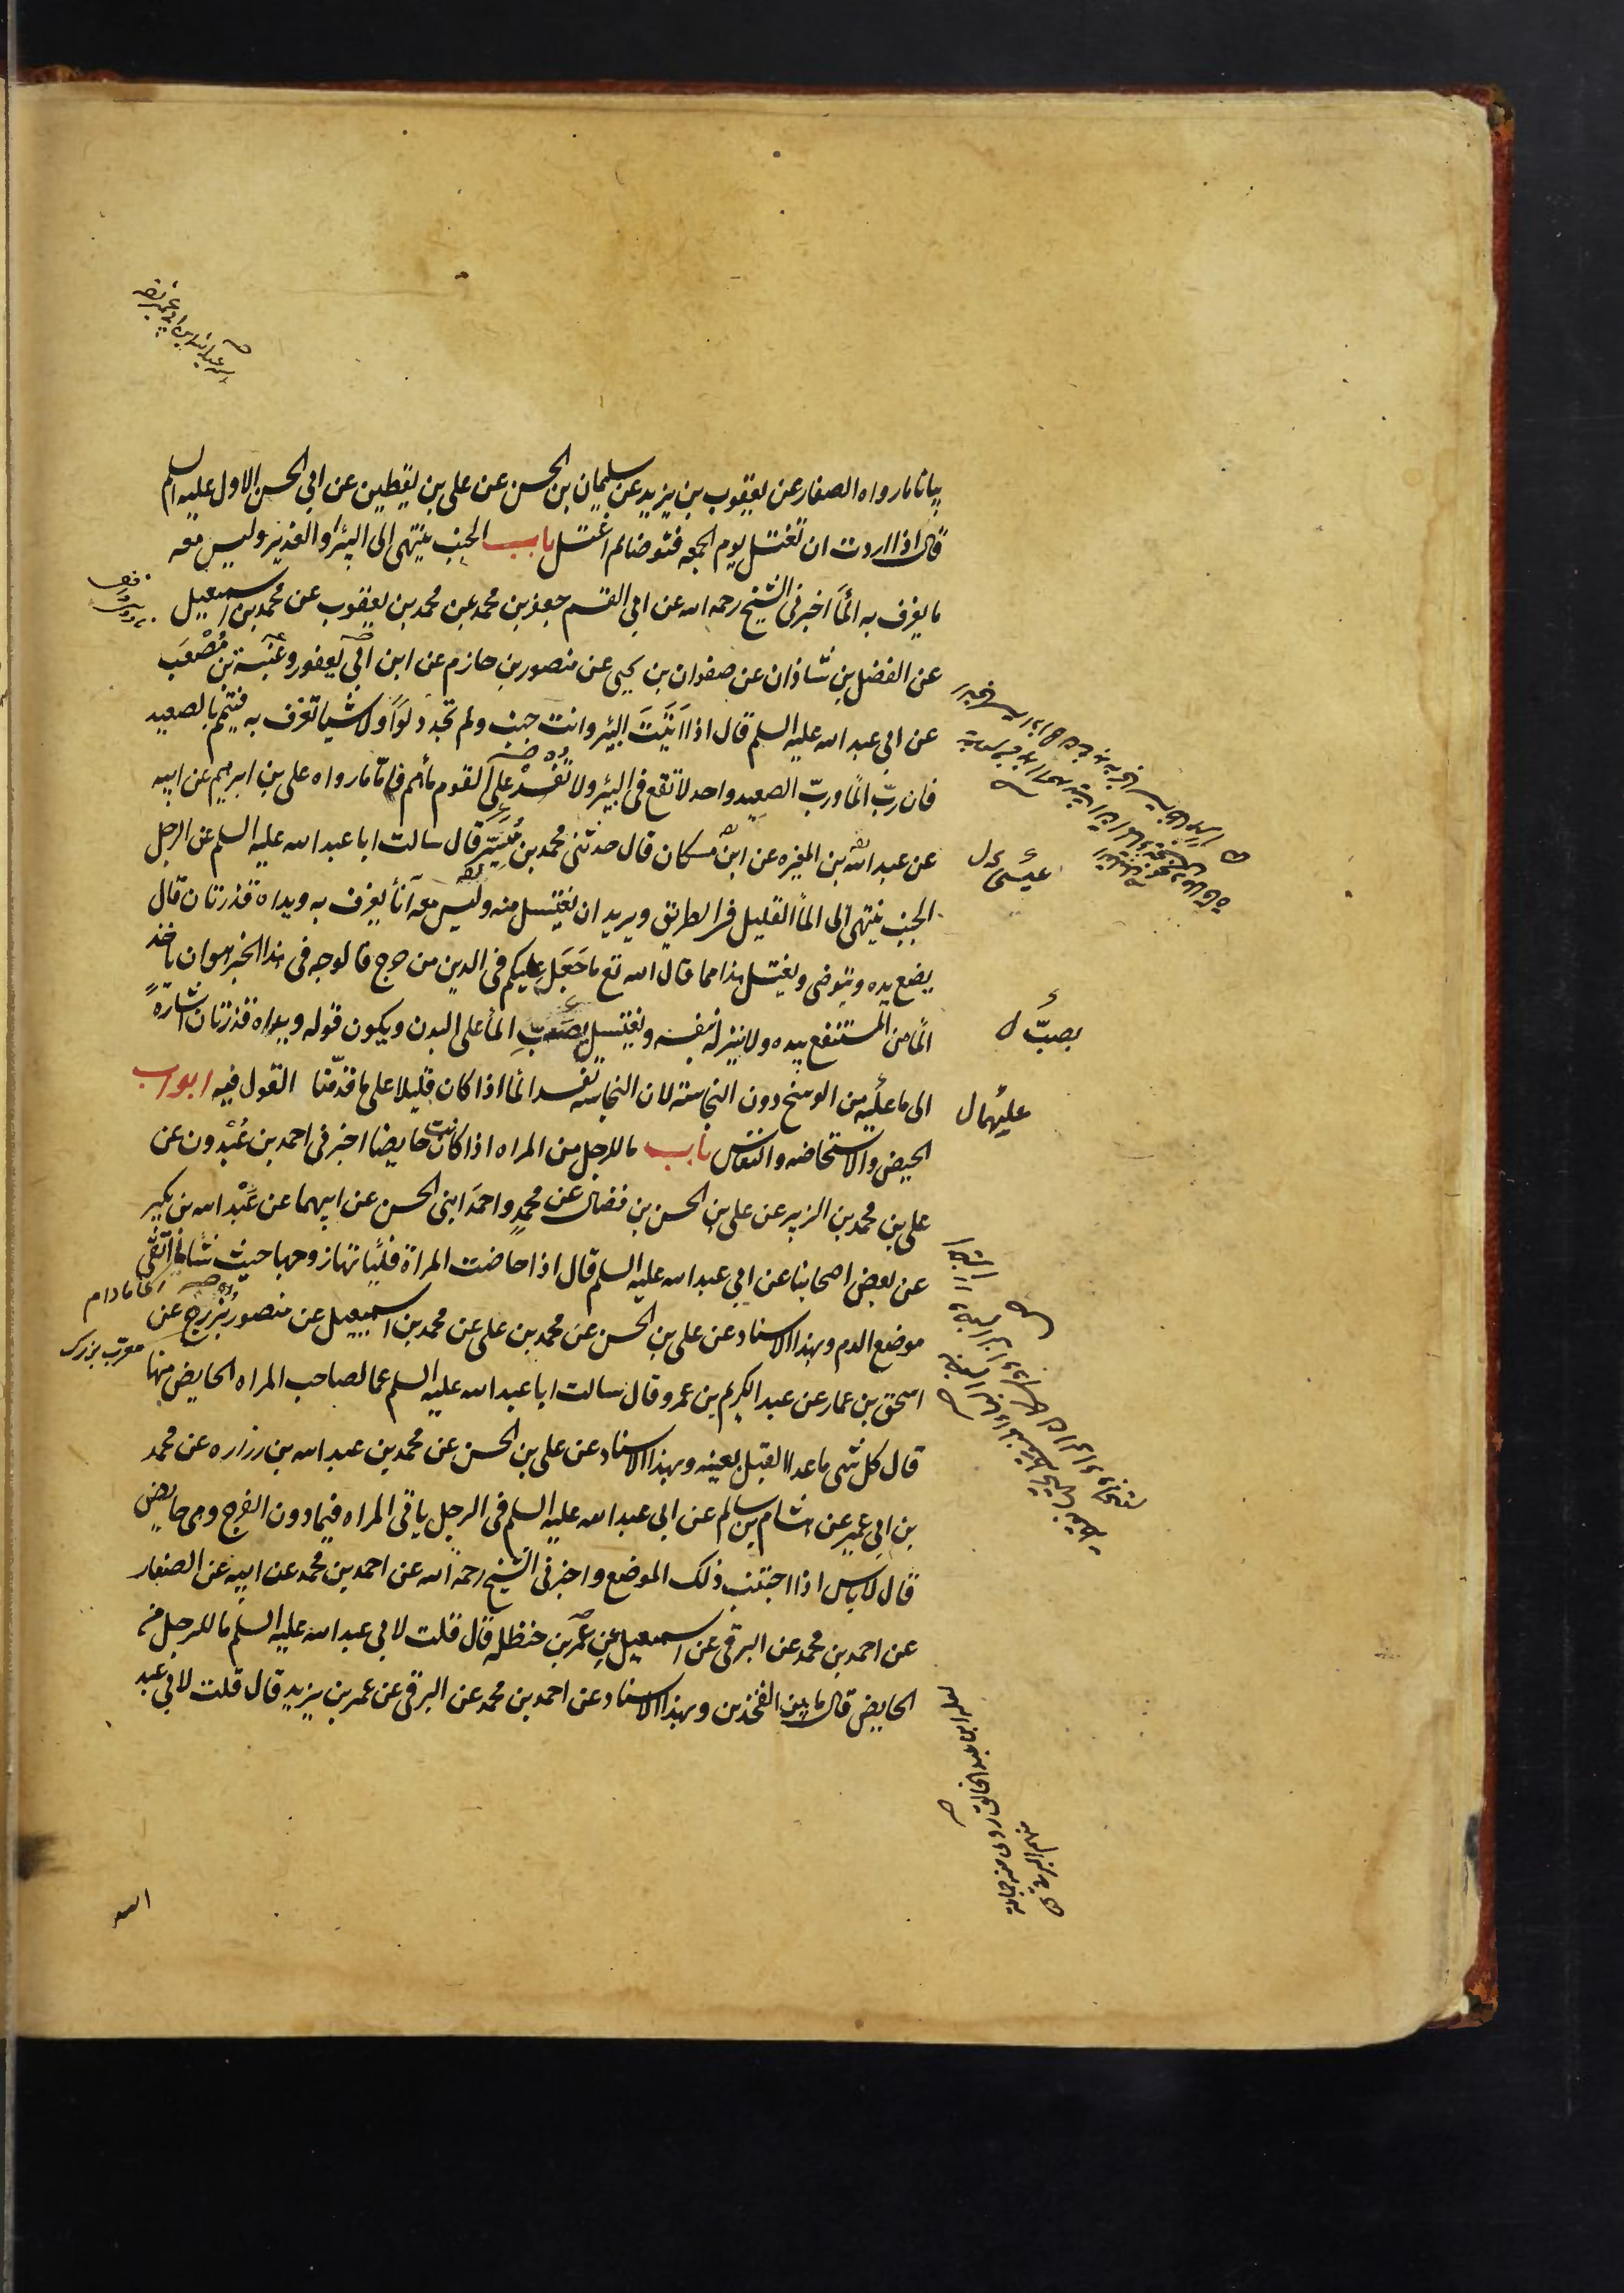 بيانا مارواه الصفار عن يعقوب بن يزيد عن سليمان بن الحسن عن علي بن يقطين عن ابي الحسن الاول عليه السلم
قال اذا اردت ان تغتسل يوم الجمعه فتوضا ثم اغتسل باب الجنب ينتهى الى البئر او الغدير وليس معه
ما يغرف به الماَ اخبرنى الشيخ رحمه الله عن ابي القسم جعفر بن محمد عن محمد بن يعقوب عن محمد بن اسمعيل
عن الفضل بن شاذان عن صفوان بن يحيى عن منصور بن حازم عن ابن ابي يعفور وعنبسة بن مُصْعَب
عن ابى عبد الله عليه السلم قال اذا اَتَيْتَ البئر وانت جنب ولم تجد دلوًا ولا شيا تغرف به فتيمم بالصعيد
فان ربّ الما وربّ الصعيد واحد لا تقع فى البئر ولا تفسد على القوم مأهم فامّا مارواه على بن ابرهيم عن ابيه
عن عبد الله بن المغيره عن ابن مسكان قال حدثنى محمد بن مُيَسِّر قال سالت ابا عبد الله عليه السلم عن الرجل
الجنب ينتهى الى الماَ القليل فى الطريق ويريد ان يغتسل منه وليس معه اناَ يغرف به ويداه قذرتان قال
يضع يده ويتوضى ويغتسل هذا مما قال الله تع ما جَعَل عليكم فى الدين من حرج فالوجه فى هذا الخبر هو ان ياخذ
الما من المستنقع بيده ولا ينزله بنفسه ويغتسل بصَبِّ الماَ على البدن ويكون قوله ويداه قذرتان اشارةً
الى ما عليه من الوسخ دون النجاسة لان النجاسه تفسد الما اذا كان قليلا على ما قدّمنا القول فيه ابواب
الحيض والاستحاضه والنفاس باب ما للرجل من المراه اذا كانت حايضا اخبرنى احمد بن عُبْدون عن
علي بن محمد بن الزبير عن على بن الحسن بن فضال عن محمد واحمد ابنى الحسن عن ابيهما عن عَبْد الله بن بكير
عن بعض اصحابنا عن ابي عبد الله عليه السلم قال اذا حاضت المراة فليأتها زوجها حيث شاَ ما اتّقى
موضع الدم وبهذا الاسناد عن على بن الحسن عن محمد بن على عن محمد بن اسمعيل عن منصور بُزُرْج عن
اسحق بن عمار عن عبد الكريم بن عمرو قال سالت ابا عبد الله عليه السلم عما لصاحب المراه الحايض منها
قال كل شى ما عدا القبل بعينه وبهذا الاسناد عن على بن الحسن عن محمد بن عبد الله بن زراره عن محمد
بن ابي عمير عن هشام بن سالم عن ابى عبد الله عليه السلم فى الرجل ياتى المراه فيما دون الفرج وهى حايض
قال لا باس اذا اجتنب ذلك الموضع واخبرنى الشيخ رحمه الله عن احمد بن محمد عن ابيه عن الصفار
عن احمد بن محمد عن البرقى عن اسمعيل عن عُمَر بن حنظله قال قلت لابي عبد الله عليه السلم ما للرجل من
الحايض قال ما بين الفخذين وبهذا الاسناد عن احمد بن محمد عن البرقى عن عمر بن يزيد قال قلت لابي عبد
عيسَى ل
بصبّ ل
عليهما ل
ما دام
معرب بزرك
الله